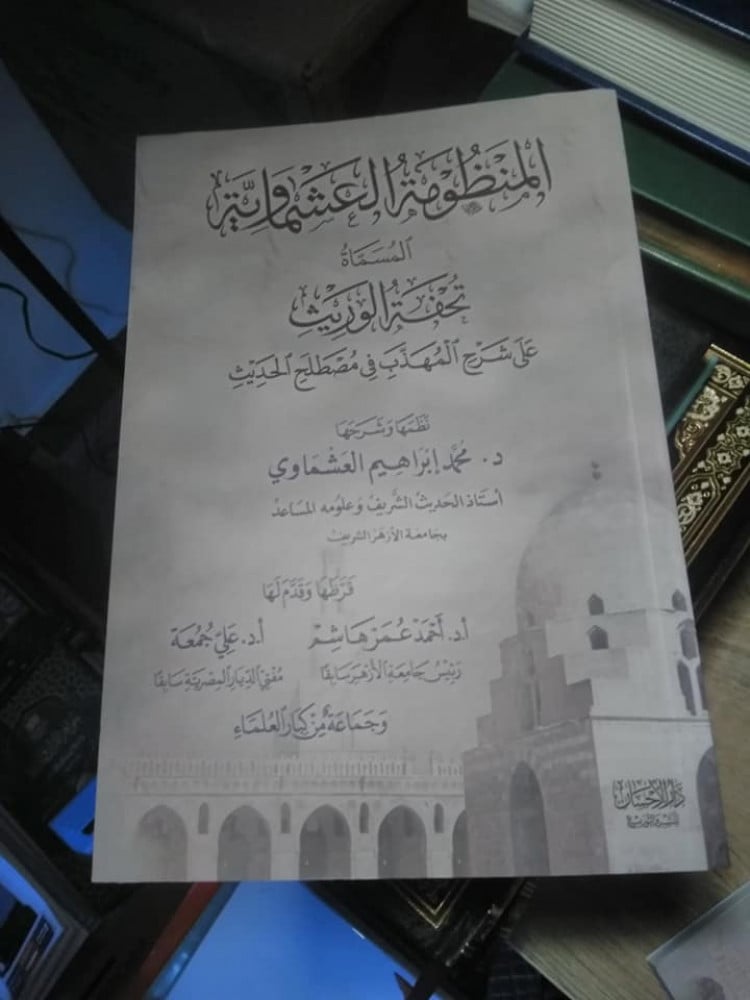 المنظومة العشماوية
المسماة
تحفة الوريث
على شرح المهذب في مصطلح الحديث
نظمها وشرحها
د. محمد إبراهيم العشماوي
أستاذ الحديث الشريف وعلومه المساعد
بجامعة الأزهر الشريف
قرظها وقدم لها
أ.د. أحمد عمر هاشم
أ.د. علي جمعة
رئيس جامعة الأزهر سابقا
مفتي الديار المصرية سابقا
وجماعة من كبار العلماء
دار الإحسان
للنشر والتوزيع